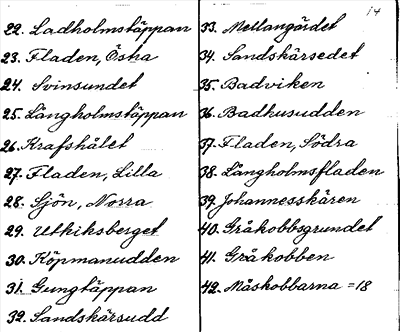 14
22. Ladholmstäppan
23. Fladen, Östra
24. Svinsundet
25. Långholmstäppan
26. Krafshålet
27. Fladen, Lilla
28. Sjön, Norra
29. Utkiksberget
30. Köpmanudden
31. Gungtäppan
32. Sandskärsudd
33. Mellangärdet
34. Sandskärsedet
35. Badviken
36. Badhusudden
37. Fladen, Södra
38. Långholmsfladen
39. Johannesskären
40. Gråkobbsgrundet
41. Gråkobben
42. Måskobbarna = 18